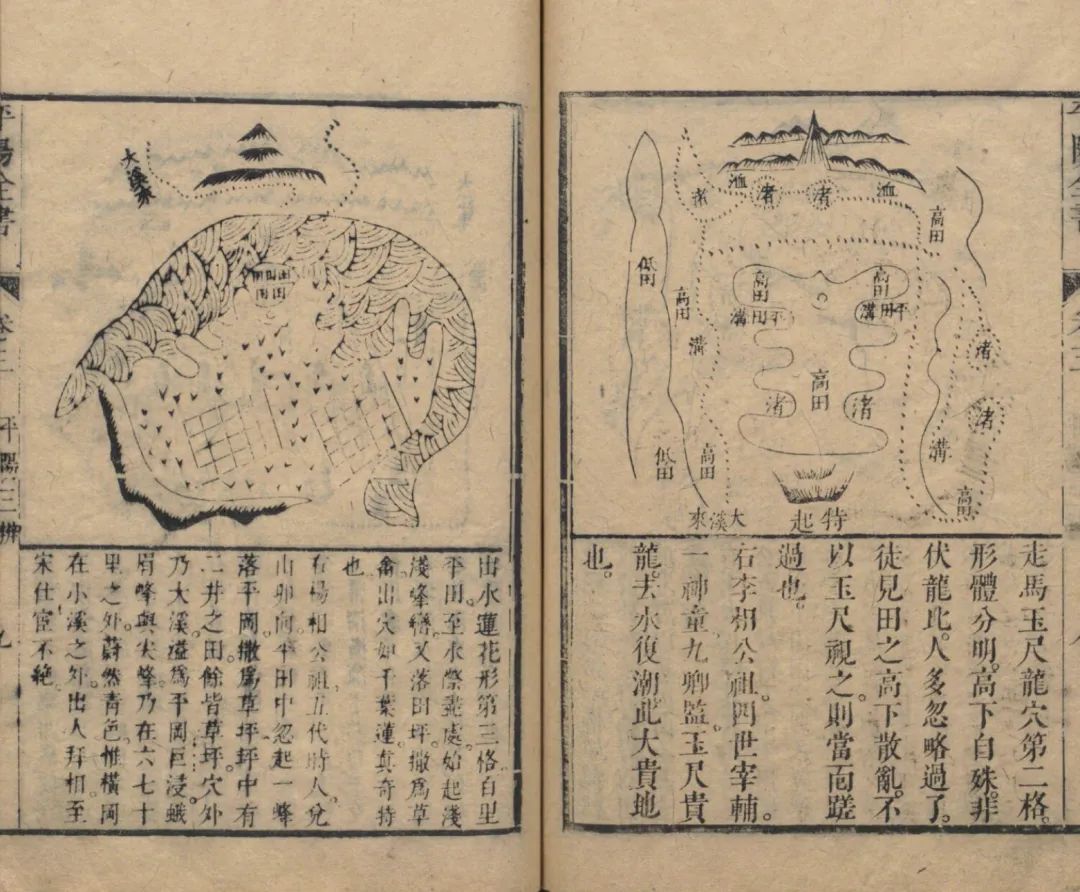 洫
渚
渚
洫
渚
高田
低田
高田
高田
高田
溝田平
溝田平
溝
渚
高田
渚
渚
渚
溝
低田
高田
高田
大溪來
特起
走馬玉尺龍穴第二格。
形體分明。高下自殊。非
伏龍此。人多忽略過了。
徒見田之高下散亂。不
以玉尺視之。則當面蹉
過也。
右李相公祖。四世宰輔。
一神童九卿監。玉尺貴
龍。去水復潮。此大貴地
也。
平陽全書
卷三
平陽三
九
大溪水
田田田
田田
出水蓮花形第三格百里
平田。至水際盡處。始起淺
淺峰巒。又落田坪。撒爲草
出穴如千葉蓮真奇特
也
右楊相公祖。五代時人。兌
山卯向。平田中忽起一峰
落平岡。撒爲草坪。坪中有
二井之田。餘皆草坪。穴外
乃大溪。溢爲平岡巨浸。蛾
眉峰與尖峰。乃在六七十
里之外。蔚然青色。惟橫岡
在小溪之外。出人拜相。至
宋仕宦不絕。